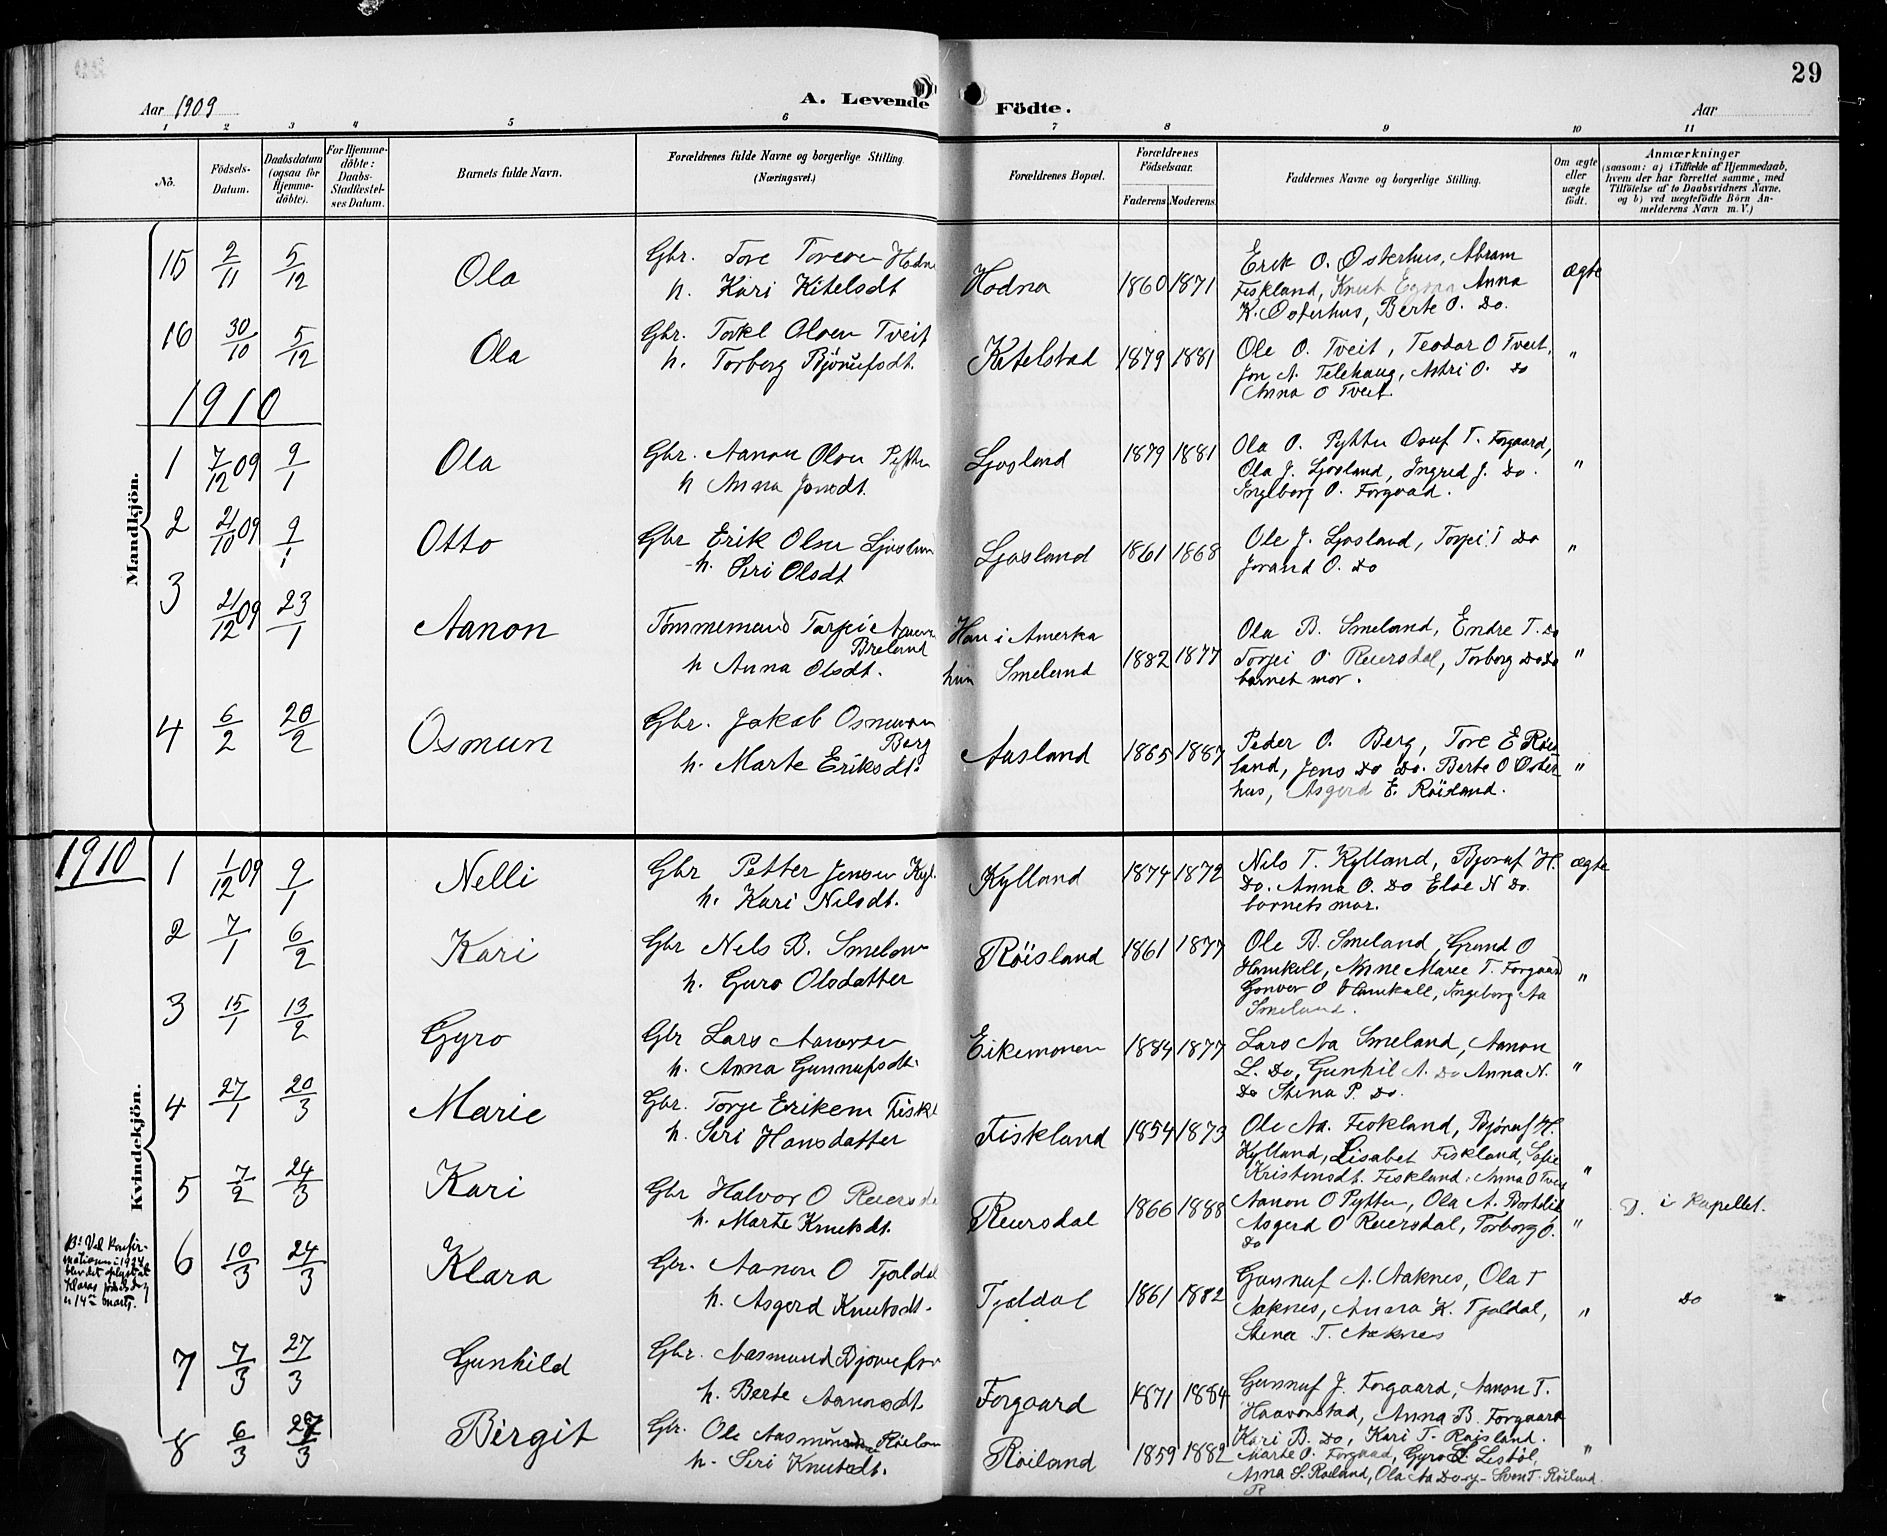 29
Aar 1909
A. Levende Födte.
Aar
1 2 3 4 5 6 7 8 9 10 11
No.
Födsels-Datum.
Daabsdatum (ogsaa for Hjemme-döbte).
For Hjemme-döbte: Daabs-Stadfæstel-ses Datum.
Barnets fulde Navn.
Forældrenes fulde Navne og borgerlige Stilling. (Næringsvei.)
Forældrenes Bopæl.
Forældrenes Födselsaar.
Faderens Moderens
Faddernes Navne og borgerlige Stilling.
Om ægte eller uægte födt.
Anmærkninger
(saasom: a) i Tilfælde af Hjemmedaab,
hvem der har forrettet samme, med
Tilföielse af to Daabsvidners Navne,
og b) ved uægtefödte Börn An-
melderens Navn m. V.)
Mandkjön.
15 2/11 5/12 Ola Gbr. Tore Toresen Hodne Hodna 1860 1871 Erik O. Østerhus, Abram ægte
h. Kari Kitelsdt Fiskland, Knut Anna
K. Østerhus, Berte O. Do.
16 30/10 5/12 Ola Gbr. Torkel Olsen Tveit Kitelstad 1879 1881 Ole O. Tveit, Teodor O Tveit, "
h. Torberg Bjørnufsdt. Jon A. Telehaug, Astri O. do
Anna O Tveit
1910
1 7/12 09 9/1 Ola Gbr. Aanon Olsen Pytten Ljosland 1879 1881 Ola O. Pytten Osuf T. Forgaard, "
h Anna Jonsdt. Ola J. Ljosland, Ingrid J. Do.
Ingeborg O. Forgaad.
2 21/10 09 9/1 Otto Gbr Erik Olsen Ljoslan Ljosland 1861 1868 Ole J. Ljosland, Torjei T Do "
h. Siri Olsdt Jorand O. Do
3 21/12 09 23/1 Aanon Tømmermand Tarjei Aanon Breland Han i Amerka 1882 1877 Ola B. Smeland, Endre T. Do
h Anna Olsdt. hun Smeland Torjei O Reiersdal, Torborg Do Do "
barnet mor.
4 6/2 20/2 Osmun Gbr. Jakob Osmundsen Berg Aasland 1865 1887 Peder O. Berg, Tore E Røis
h. Marte Eriksdt. land, Jens Do Do. Berte O Øster "
hus, Asgerd E. Røisland.
Kvindekjön.
1910
1 1/12 09 9/1 Nelli Gbr Petter Jensen Kyl. Kylland 1874 1872 Nils T. Kylland, Bjoruf H. ægte
h. Kari Nilsdt. Do. Anna O. Do Else N Do.
barnets mor.
2 7/1 6/2 Kari Gbr Nels B. Smelan Røisland 1861 1877 Ole B. Smeland, Grund O
h. Guro Olsdatter Hamkoll, Anne Marie T. Forgaard "
Gonver O Hamkoll, Ingeborg Aa
Smeland.
3 15/1 13/2 Gyro Gbr Lars Aanonsen Eikemonen 1884 1877 Lars Aa Smeland, Aanon
h. Anna Gunnufsdt. L. Do, Gunhil A. Do Anna N. "
Do Stena P. Do.
4 27/1 20/3 Marie Gbr. Torje Eriksen Fiskl Fiskland 1854 1873 Ole Aa. Fiskland, Bjøruf H.
h. Siri Hansdatter Kylland, Lisabet Fiskland, Sofie "
Kristensdt. Fiskland. Anna O Tveit
5 7/2 24/3 Kari Gbr Halvor O Reiersdal Reiersdal 1866 1888 Aanon O Pytten, Ola A. Bortelid D. i kapellet.
h. Marte Knutsdt. Asgerd O Reiersdal, Torborg O. "
Do
6 10/3 24/3 Klara Gbr. Aanon O Tjaldal Tjaldal 1861 1882 Gunnuf A. Aaknes, Ola T Do "
h. Asgerd Knutsdt. Aaknes, Anna K. Tjaldal, "
Stena T. Aaknes
B: Ved konfir-
mationen i 1924
blev det oplyst at
Klaras fødselsdag
er 14de marts.
7 7/3 27/3 Gunhild Gbr. Aasmund Bjorufson Forgaard 1871 1884 Gunnuf J. Forgaard, Aanon T.
h. Berte Aanonsdt Haavorstad, Anna B. Forgaard
Kari B. Do, Kari T. Røisland.
8 6/3 27/3 Birgit Gbr. Ole Aasmundsen Røilan Røiland 1859 1882 Marte O. Forgaad, Gyro L Lestøl, "
h. Siri Knutsdt. Anna S. Røiland, Ola Aa Do og Sven T. Røiland